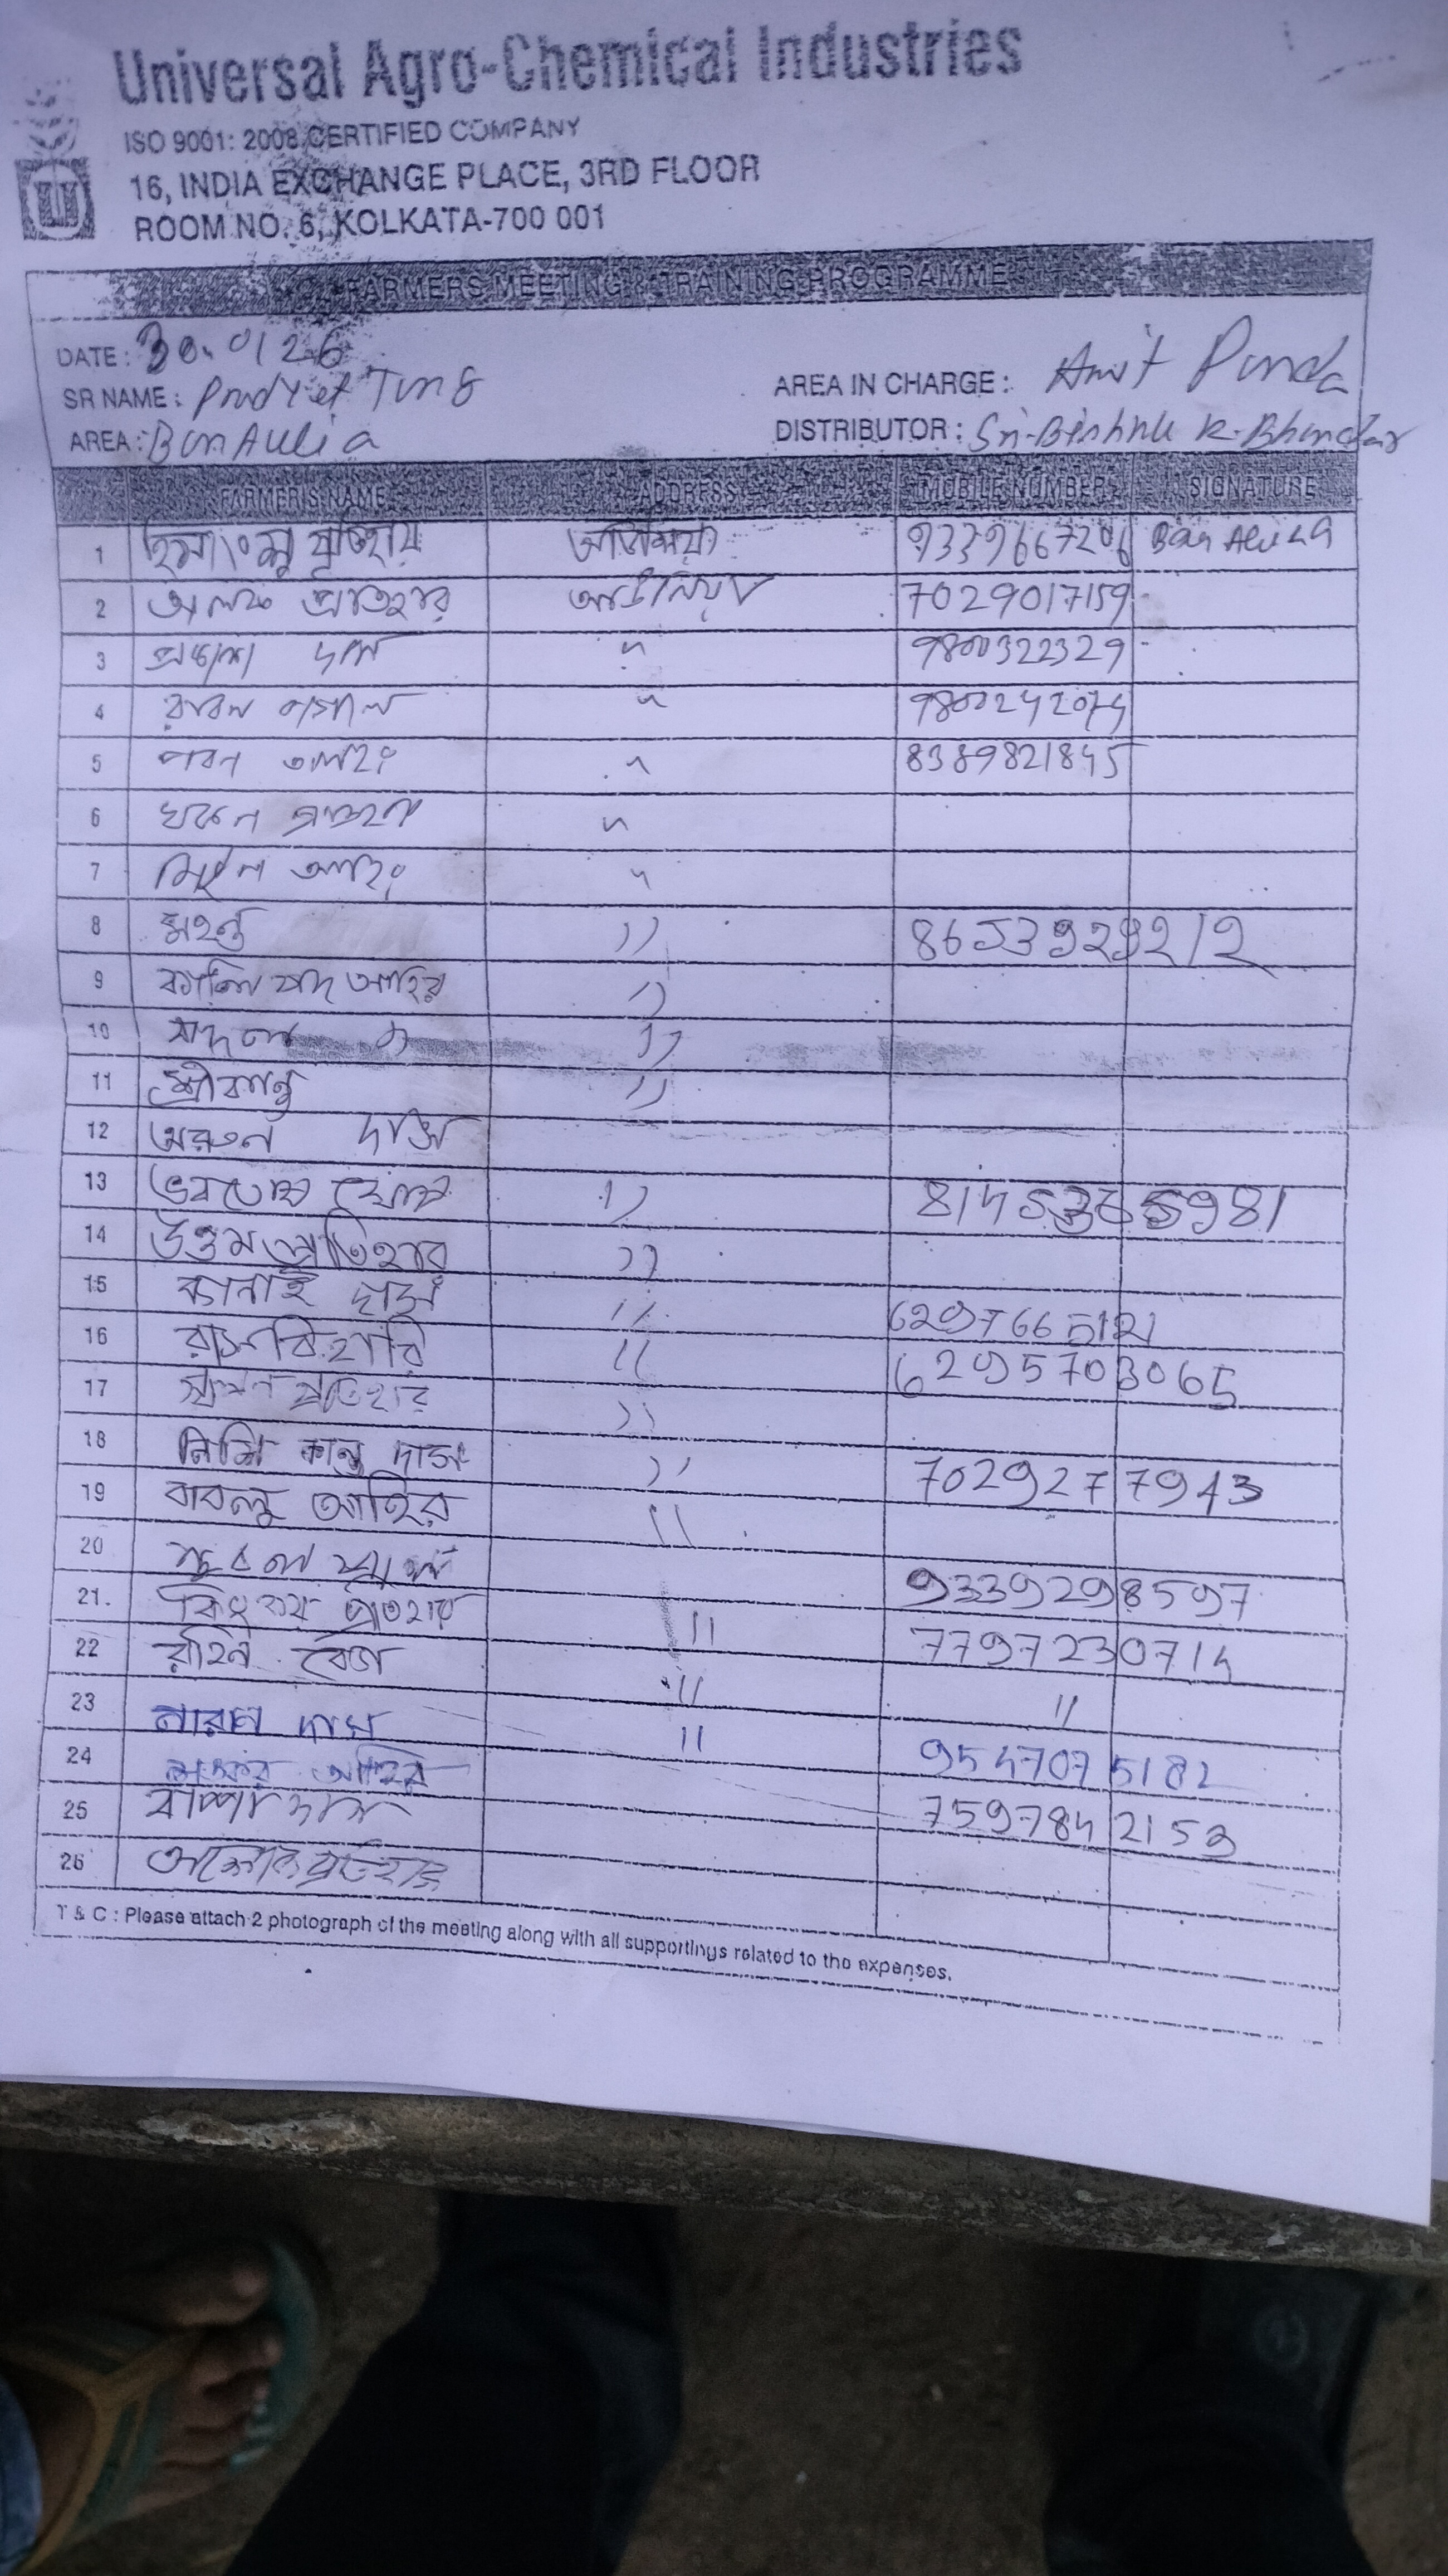 Universal Agro-Chemical Industries
ISO 9001: 2008 CERTIFIED COMPANY
16, INDIA EXCHANGE PLACE, 3RD FLOOR
ROOM NO. 6, KOLKATA-700 001
FARMERS MEETING & TRAINING PROGRAMME
DATE : 30.0126
SR NAME : Tung AREA IN CHARGE : Amit Panda
AREA : Ban Aulia DISTRIBUTOR : Sri-Bishnu K. Bhandar
FARMER'S NAME ADDRESS MOBILE NUMBER SIGNATURE
1 হিমাংশু প্রতিহার 9339667206
2 অলক প্রতিহার 7029017159
3 প্রকাশ দাস " 9800322329
4 " 9800242074
5 পবন " 8389821845
6 "
7 "
8 মহন্ত " 8653929212
9 কালিপদ আহির "
10 বাদল "
11 শ্রীকান্ত "
12 অরুন দাস
13 ভবতোষ ঘোষ "
14 উত্তম প্রতিহার "
15 কানাই দাস " 6297665121
16 রাসবিহারি " 6295703065
17 স্বপন প্রতিহার "
18 নিশি কান্ত দাস " 7029277943
19 বাবলু আহির "
20 9339298597
21. প্রতিহার " 7797230714
22 "  "
23 নারান দাস " 9547075182
24 শংকর আহির 7597842153
25 বাপ্পা দাস
26 অশোক প্রতিহার
T & C : Please attach 2 photograph of the meeting along with all supportings related to the expenses.